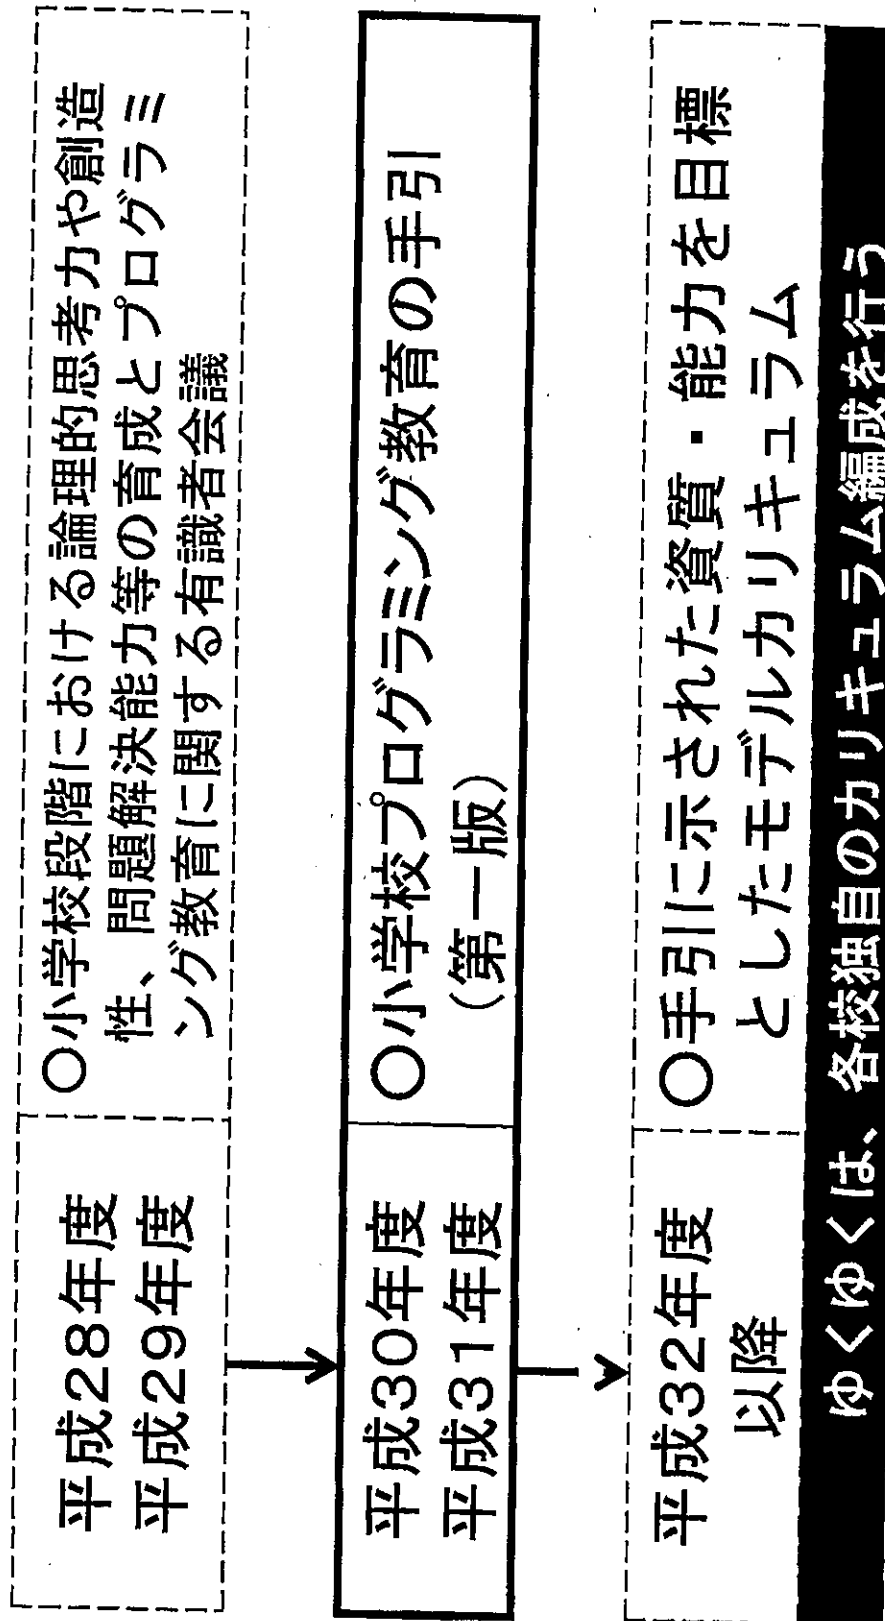 平成28年度
平成29年度
〇小学校段階における論理的思考力や創造
性、問題解決能力等の育成とプログラミ
ング教育に関する有識者会議
平成30年度
平成31年度
〇小学校プログラミング教育の手引
（第一版）
平成32年度
以降
〇手引に示された資質・能力を目標
としたモデルカリキュラム
ゆくゆくは、各校独自のカリキュラム編成を行う